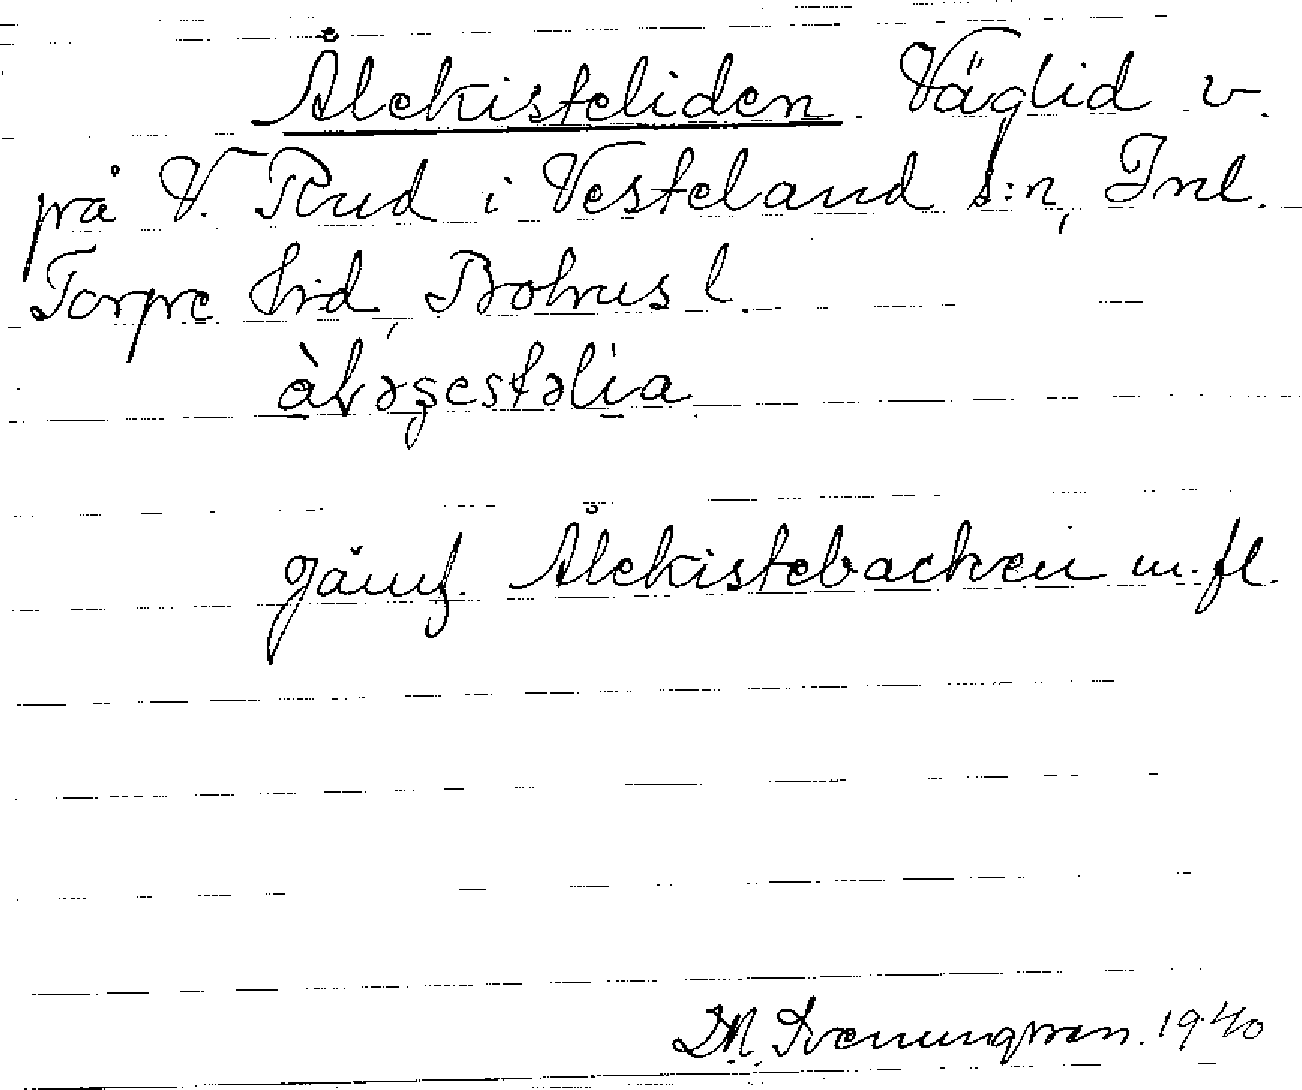 Ålekisteliden Väglid v.
på V. Rud i Vesteland s:n, Inl.
Torpe hrd, Bohus l.
Jämf. Ålekistebacken m.fl.
Svenungsson. 1940